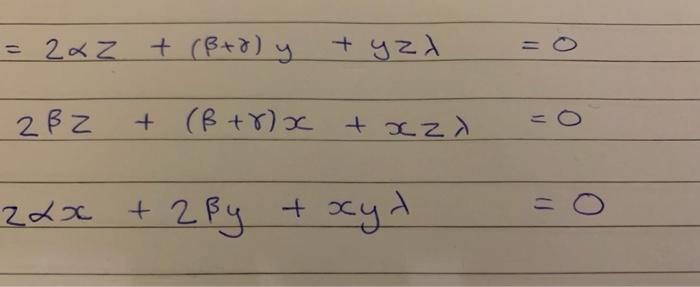 = 2αz + (β+γ) y + yzλ = 0
2βz + (β+γ)x + xzλ = 0
2αx + 2βy + xyλ = 0